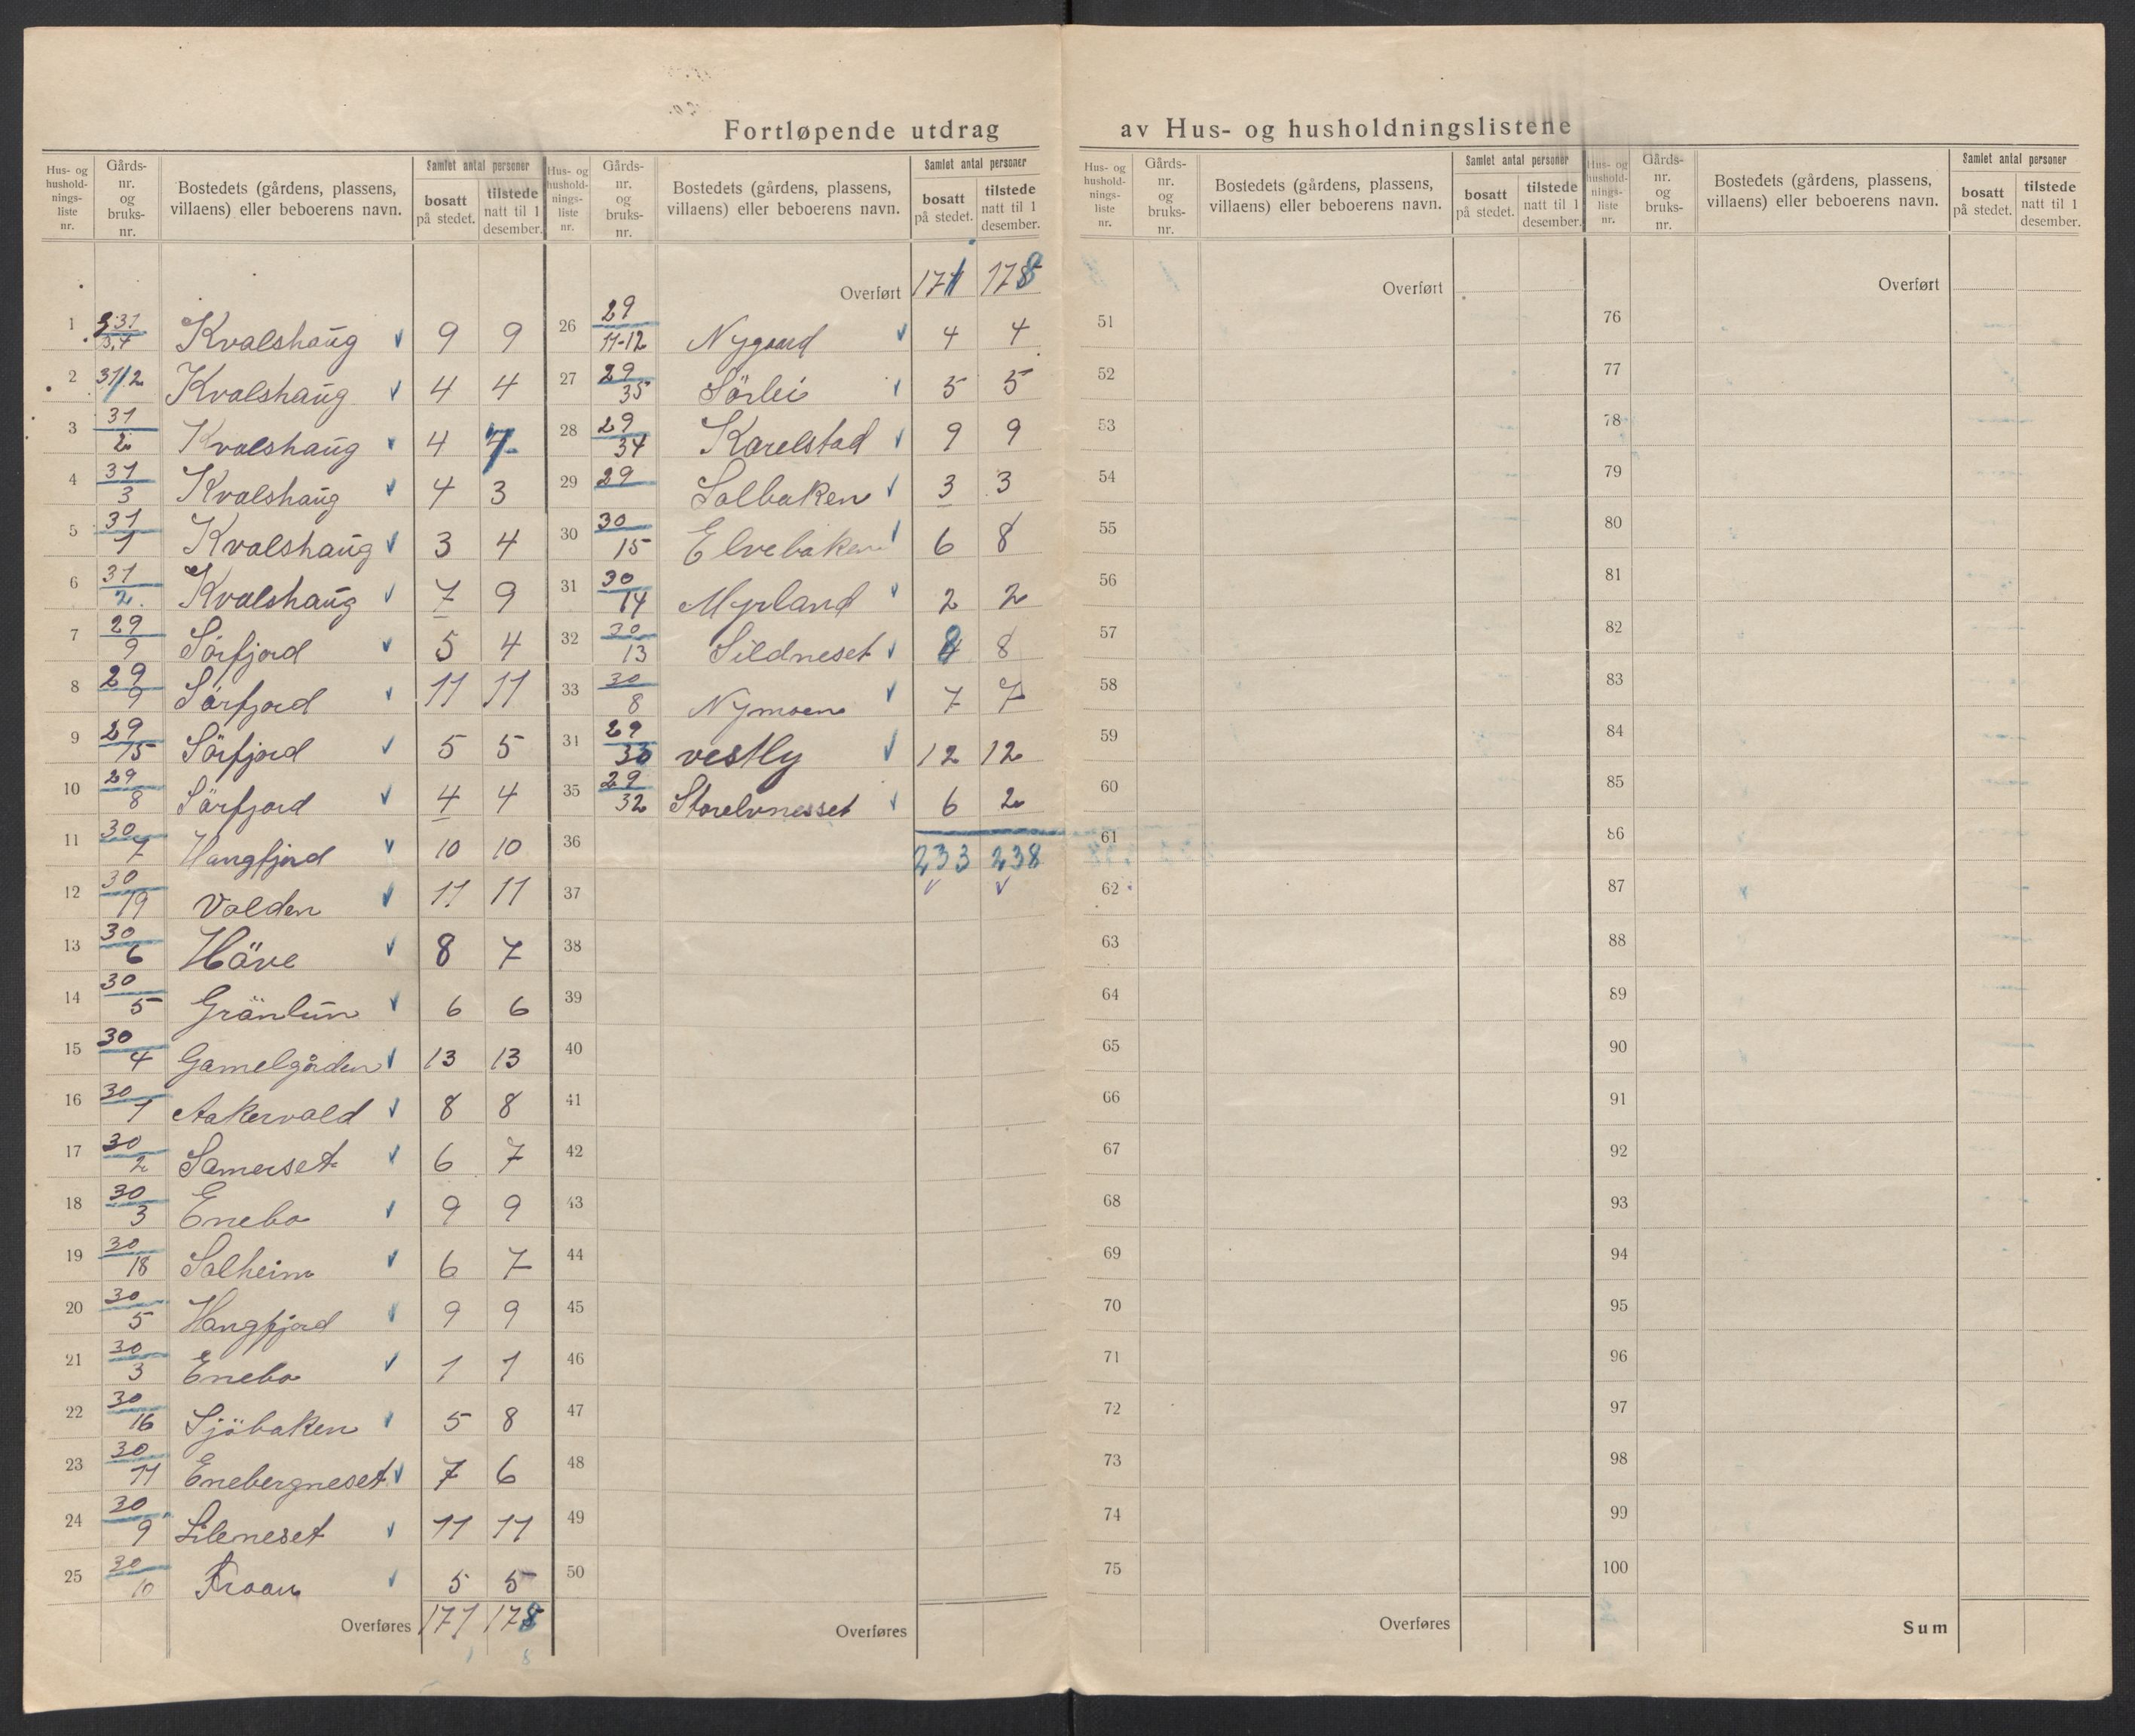 Fortløpende utdrag av Hus- og husholdningslistene
Hus- og husholdningsliste nr. | Gårdsnr. og bruksnr. | Bostedets (gårdens, plassens, villaens) eller beboerens navn. | Samlet antal personer bosatt på stedet. | tilstede natt til 1 desember.
1 Kvalshaug 9 9
2 31/2 Kvalshaug 4 4
3 31/2 Kvalshaug 4 7
4 31/3 Kvalshaug 4 3
5 31/1 Kvalshaug 3 4
6 31/2 Kvalshaug 7 9
7 29/9 Sörfjord 5 4
8 29/9 Sörfjord 11 11
9 29/15 Sörfjord 5 5
10 29/8 Sörfjord 4 4
11 30/7 Haugfjord 10 10
12 30/19 Volden 11 11
13 30/6 Häve 8 7
14 30/5 Grönlun 6 6
15 30/4 Gamelgården 13 13
16 30/1 Aakervold 8 8
17 30/2 Samerset 6 7
18 30/3 Enebo 9 9
19 30/18 Solheim 6 7
20 30/5 Haugfjord 9 9
21 30/3 Enebo 1 1
22 30/16 Sjöbaken 5 8
23 30/11 Enebergneset 7 6
24 30/9 Lileneset 11 11
25 30/10 Troan 5 5
Overføres 171 178
Hus- og husholdningsliste nr. | Gårdsnr. og bruksnr. | Bostedets (gårdens, plassens, villaens) eller beboerens navn. | Samlet antal personer bosatt på stedet. | tilstede natt til 1 desember.
Overført 171 178
26 29/11-12 Nygaard 4 4
27 29/35 Sörlei 5 5
28 29/34 Karelstad 9 9
29 29 Solbaken 3 3
30 30/15 Elvebaken 6 8
31 30/14 Myrland 2 2
32 30/13 Sildneset 8 8
33 30/8 Nymoen 7 7
31 29/33 vestly 12 12
35 29/32 Storelvnesset 6 2
36 233 238
37
38
39
40
41
42
43
44
45
46
47
48
49
50
Overføres
Hus- og husholdningsliste nr. | Gårdsnr. og bruksnr. | Bostedets (gårdens, plassens, villaens) eller beboerens navn. | Samlet antal personer bosatt på stedet. | tilstede natt til 1 desember.
Overført
51
52
53
54
55
56
57
58
59
60
61
62
63
64
65
66
67
68
69
70
71
72
73
74
75
Overføres
Hus- og husholdningsliste nr. | Gårdsnr. og bruksnr. | Bostedets (gårdens, plassens, villaens) eller beboerens navn. | Samlet antal personer bosatt på stedet. | tilstede natt til 1 desember.
Overført
76
77
78
79
80
81
82
83
84
85
86
87
88
89
90
91
92
93
94
95
96
97
98
99
100
Sum